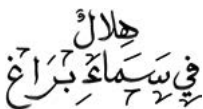 هِلَالٌ
فِي سَمَاءِ بِرَاغ